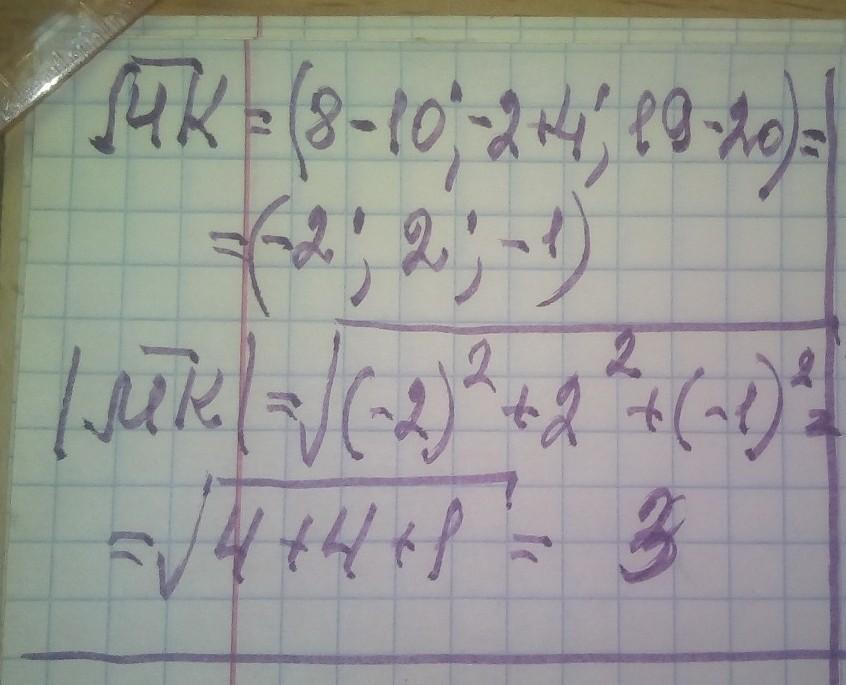 M̅K̅ = (8 - 10; -2+4; 19 - 20) =
= (-2; 2; -1)
|M̅K̅| = √((-2)² + 2² + (-1)²) =
= √(4+4+1) = 3